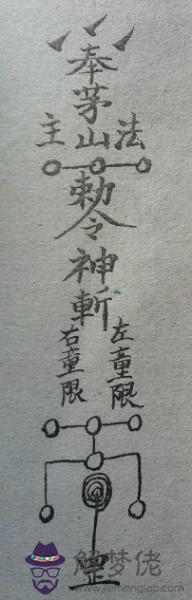 奉
茅
主山法
勅
令
神
斬
左童限
右童限
罡
解梦佬
www.jiemenglap.com